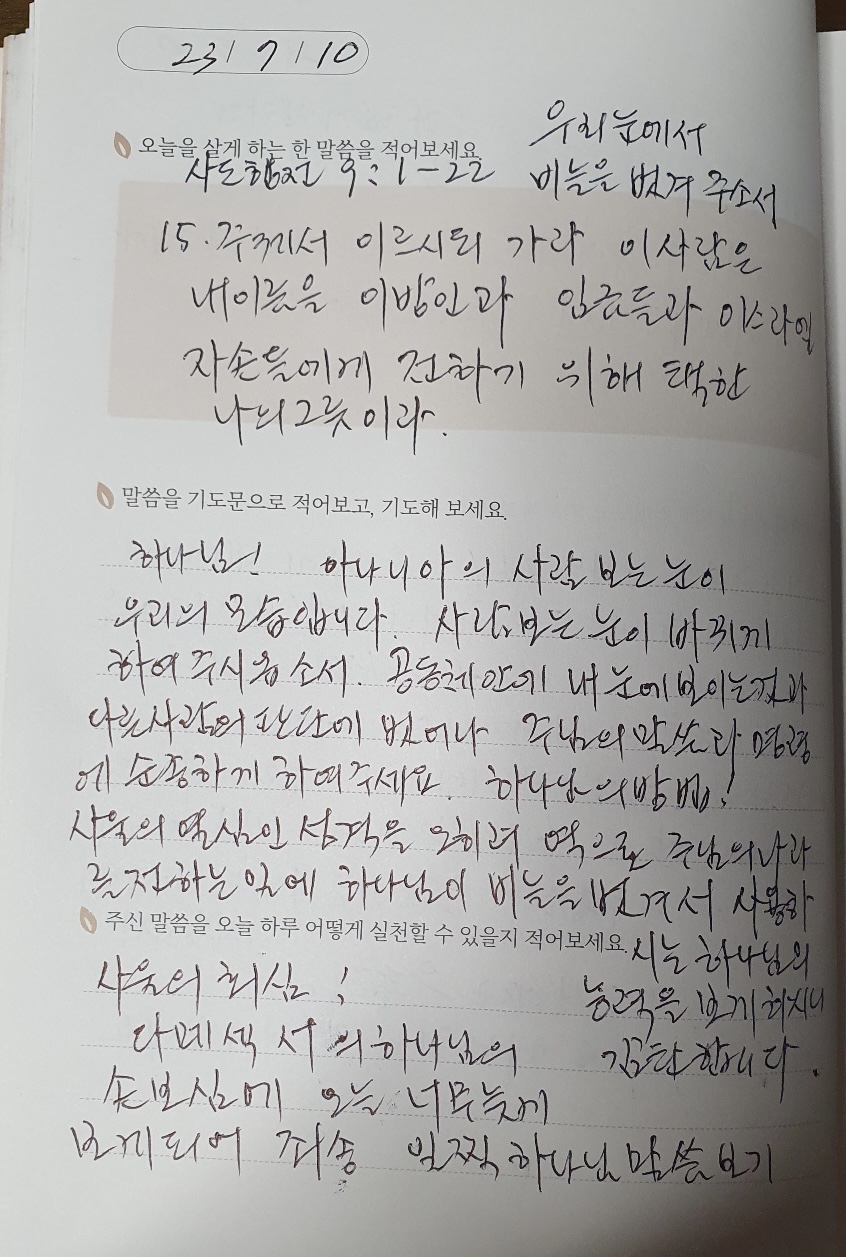 23 / 7 / 10
오늘을 살게 하는 한 말씀을 적어보세요.
사도행전 9:1-22
우리 눈에서
비늘을 벗겨 주소서
15. 주께서 이르시되 가라 이사람은
내이름을 이방인과 임금들과 이스라엘
자손들에게 전하기 위해 택한
나의그릇이라.
말씀을 기도문으로 적어보고, 기도해 보세요.
하나님! 아나니아의 사람 보는 눈이
우리의 모습입니다. 사람보는 눈이 바뀌게
하여 주시옵소서. 공동체안에 내 눈에보이는것과
다른사람의 판단에 벗어나 주님의 말씀과 명령
에 순종하게 하여주세요. 하나님의방법!
사울의 열심인 성격을 오히려 역으로 주님의나라
를전하는일에 하나님이 비늘을 벗겨서 사용하
시는 하나님의
능력을 보게하시니
감탄합니다.
주신 말씀을 오늘 하루 어떻게 실천할 수 있을지 적어보세요.
사울의 회심!
다메섹 서의하나님의
손보심에 오늘 너무늦게
보게되어 죄송 일찍하나님말씀보기